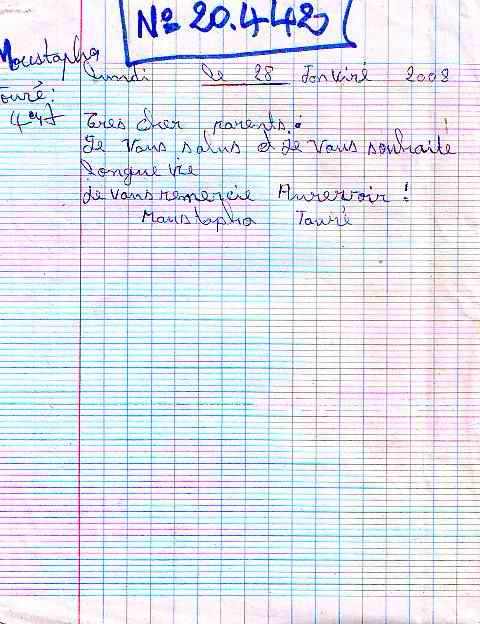 Nº 20.442
Moustapha
Touré:
Lundi le 28 Jonviré 2008
Tres cher parents:
Je vous salus et Je vous souhaite
longue vie
Je vous remercie Aurevoir!
Moustapha Touré